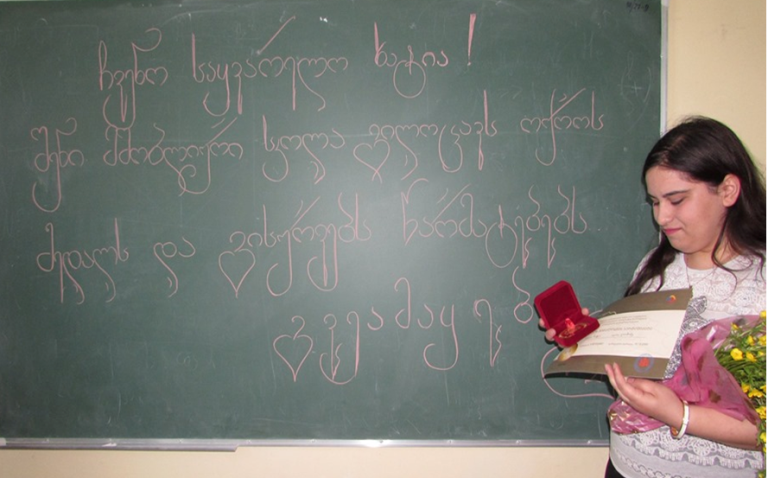 ჩვენო საყვარელო ხატია!
შენი მშობლიური სკოლა გილოცავს ოქროს
მედალს და გისურვებს წარმატებებს.
გვეამაყები